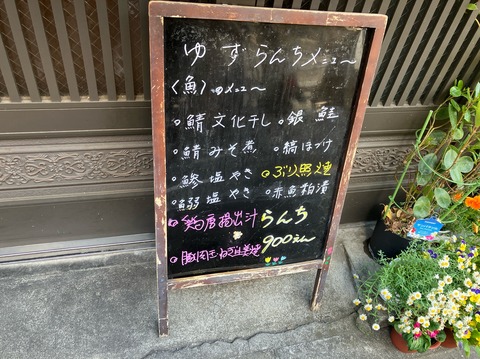 ゆずらんちメニュー
(魚)のメニュー
・鯖文化干し ・銀鮭
・鯖みそ煮 ・縞ほっけ
・鯵塩やき ・ぶり照焼
・鰯塩やき ・赤魚粕漬
・鶏唐揚出汁 らんち
900えん